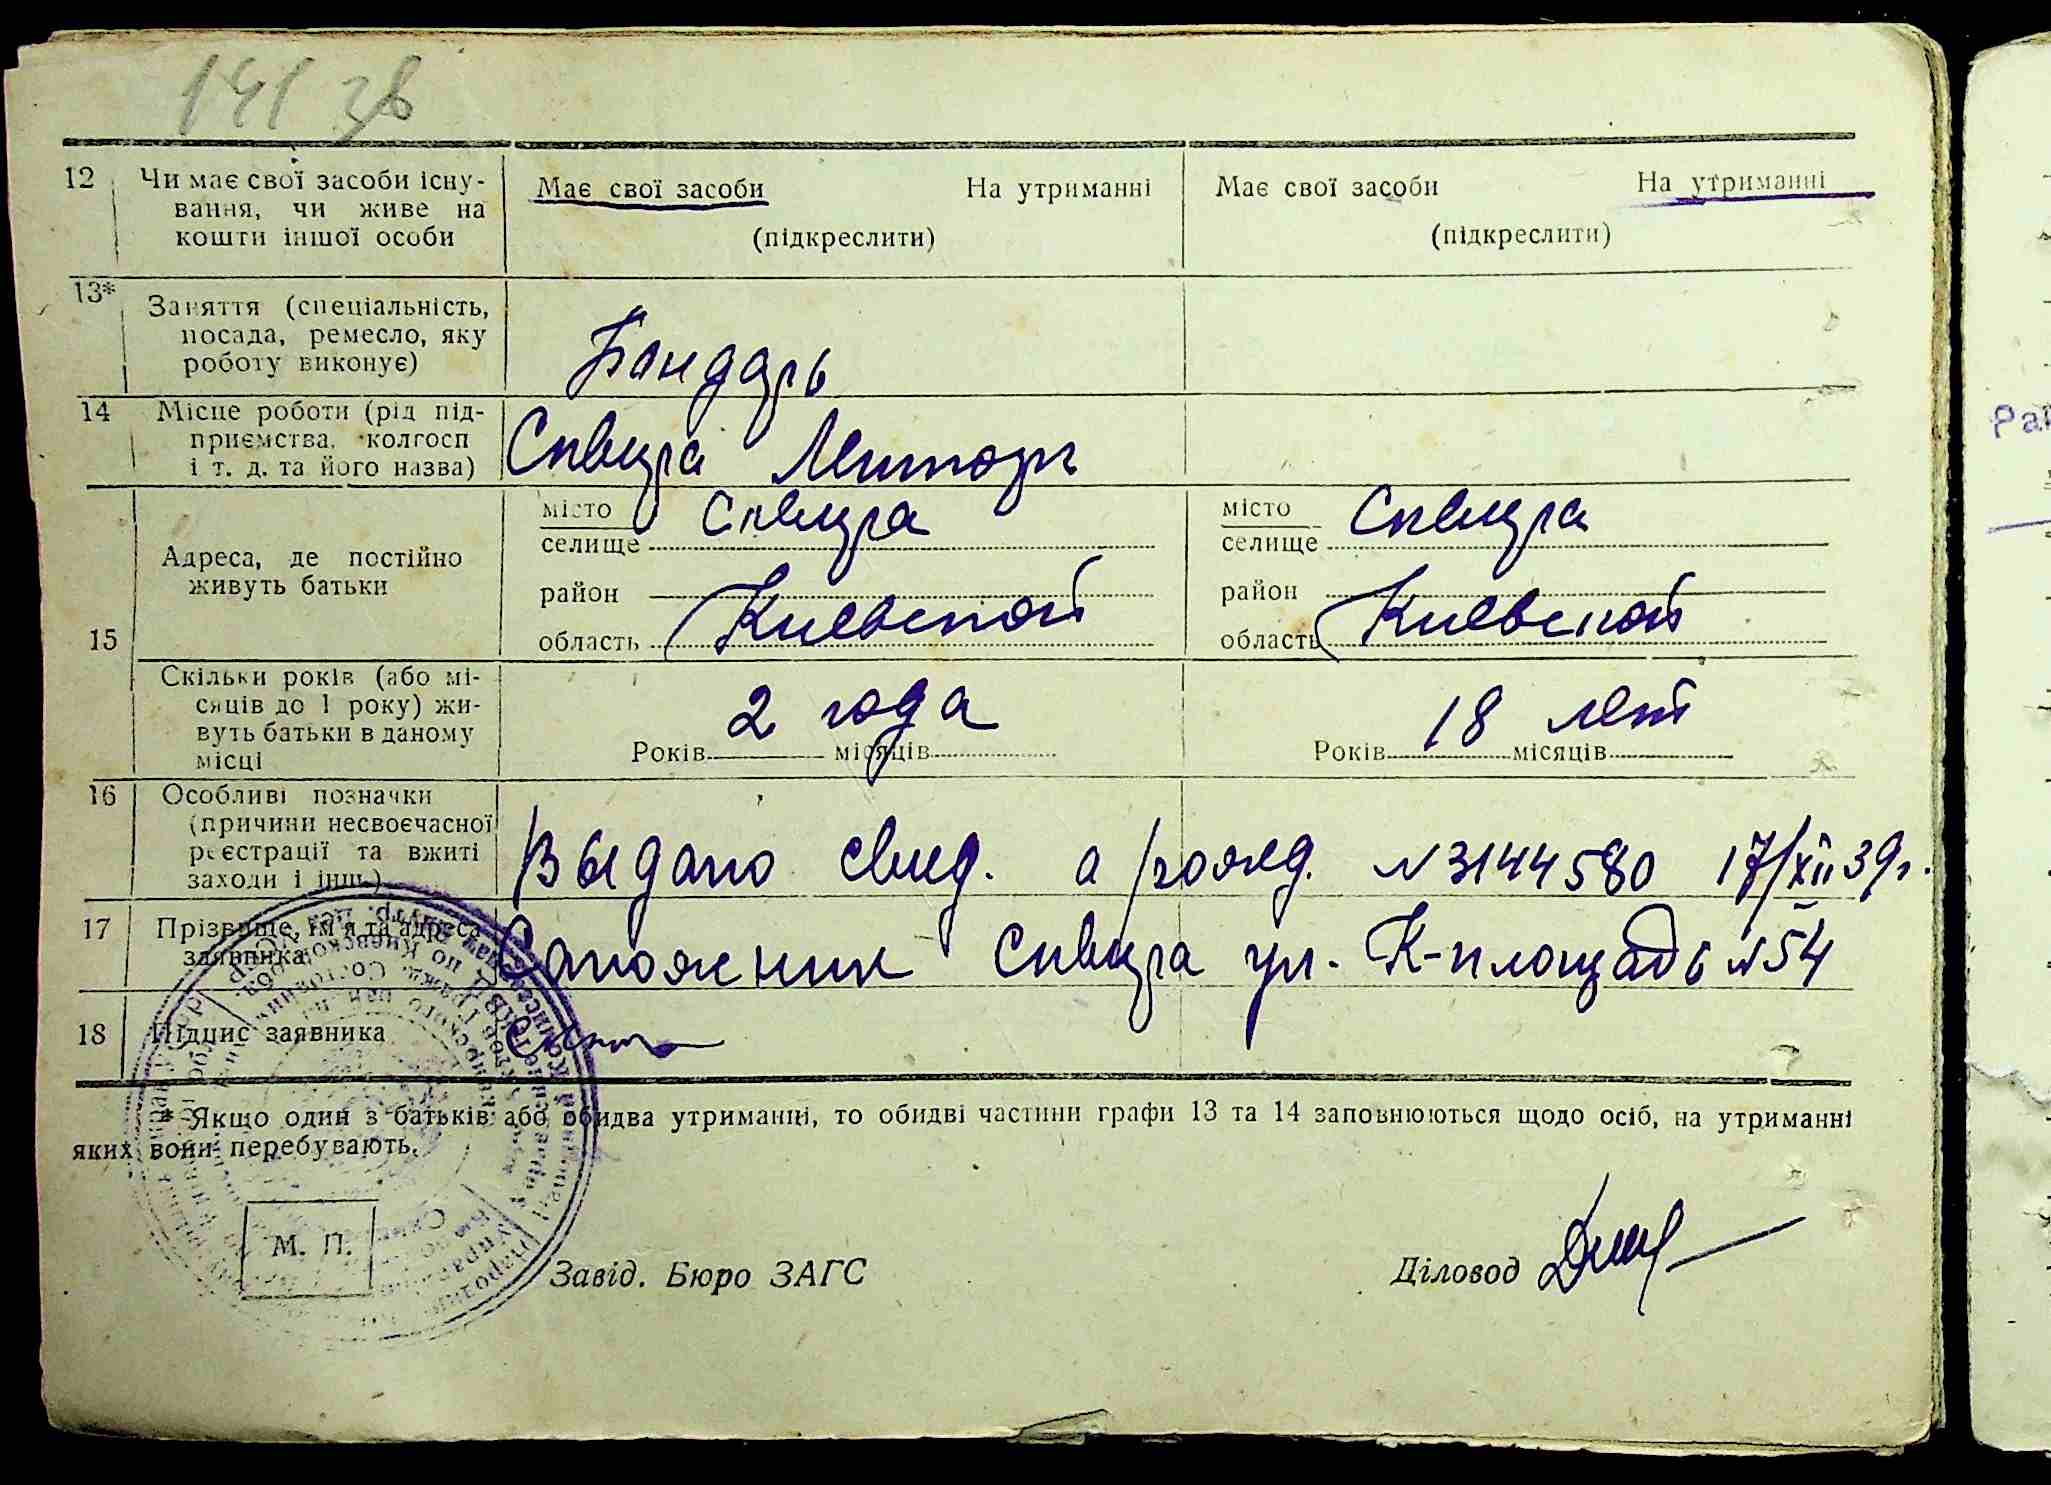 141 зв
12 Чи має свої засоби існу-
вання, чи живе на
кошти іншої особи
Має свої засоби На утриманні
(підкреслити)
Має свої засоби На утриманні
(підкреслити)
13* Заняття (спеціальність,
посада, ремесло, яку
роботу виконує)
Бандарь
14 Місце роботи (рід під-
приємства, колгосп
і т. д. та його назва)
Сквира
15 Адреса, де постійно
живуть батьки
місто
селище Сквира
район
область Киевской
місто
селище Сквира
район
область Киевской
Скільки років (або мі-
сяців до 1 року) жи-
вуть батьки в даному
місці
2 года
Років місяців
18 лет
Років місяців
16 Особливі позначки
(причини несвоєчасної
реєстрації та вжиті
заходи і інш.)
Выдано свид. о рожд. №3144580 17/XII 39г.
17 Прізвище, ім'я та адреса
заявника
Сапожник Сквира ул. К-площадь №54
18 Підпис заявника
* Якщо один з батьків або обидва утриманці, то обидві частини графи 13 та 14 заповнюються щодо осіб, на утриманні
яких вони перебувають.
М. П.
Завід. Бюро ЗАГС
Діловод